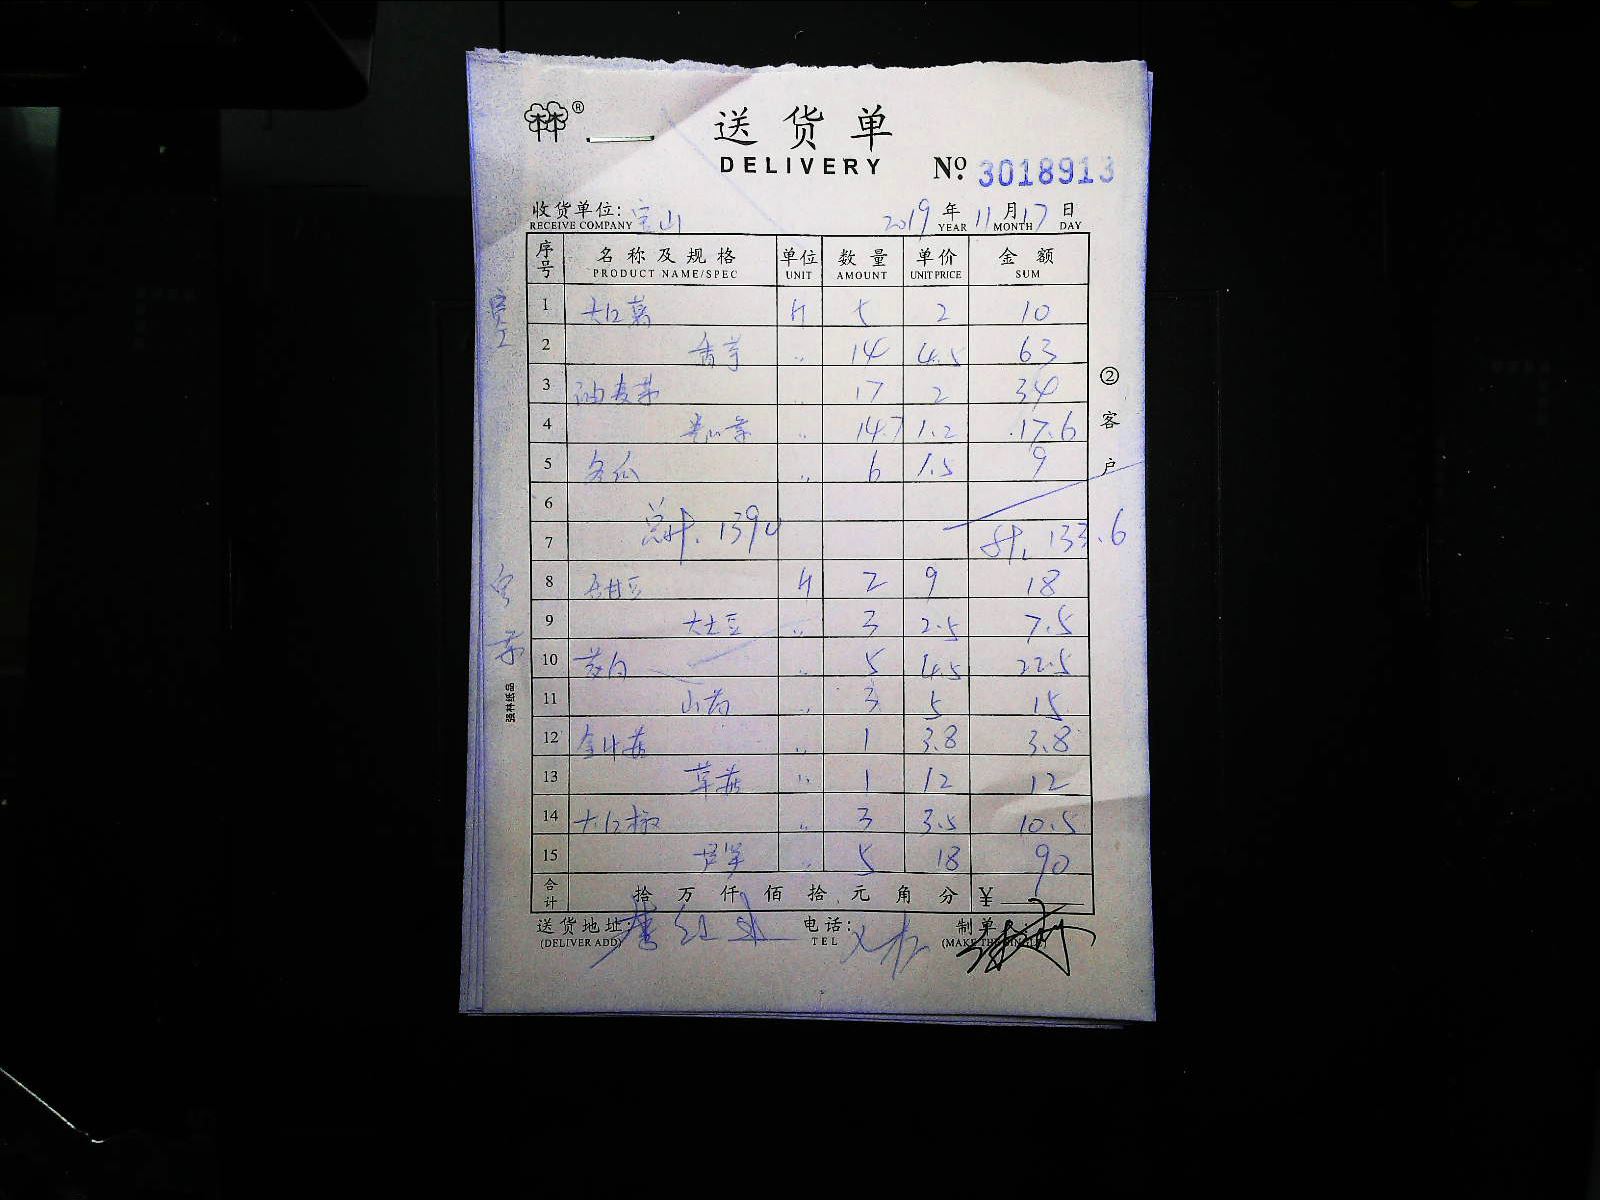 林®
送货单
DELIVERY
Nº 3018913
收货单位: 宝山 2019年11月17日
RECEIVE COMPANY YEAR MONTH DAY
序号 名称及规格 单位 数量 单价 金额
PRODUCT NAME/SPEC UNIT AMOUNT UNIT PRICE SUM
1 5 2 10
2 香芋 〃 14 4.5 63
3 油麦菜 〃 17 2 34
4 〃 14.7 1.2 17.6
5 冬瓜 〃 6 1.5 9
6
7 总计. 1394 计. 133.6
8 2 9 18
9 大土豆 〃 3 2.5 7.5
10 茭白 〃 5 4.5 22.5
11 山药 〃 3 5 15
12 金针菇 〃 1 3.8 3.8
13 草菇 〃 1 12 12
14 大红椒 〃 3 3.5 10.5
15 芦笋 〃 5 18 90
合计 拾万仟佰拾元角分 ¥
送货地址: 电话: 制单
(DELIVER ADD) TEL
②客户
强林纸品